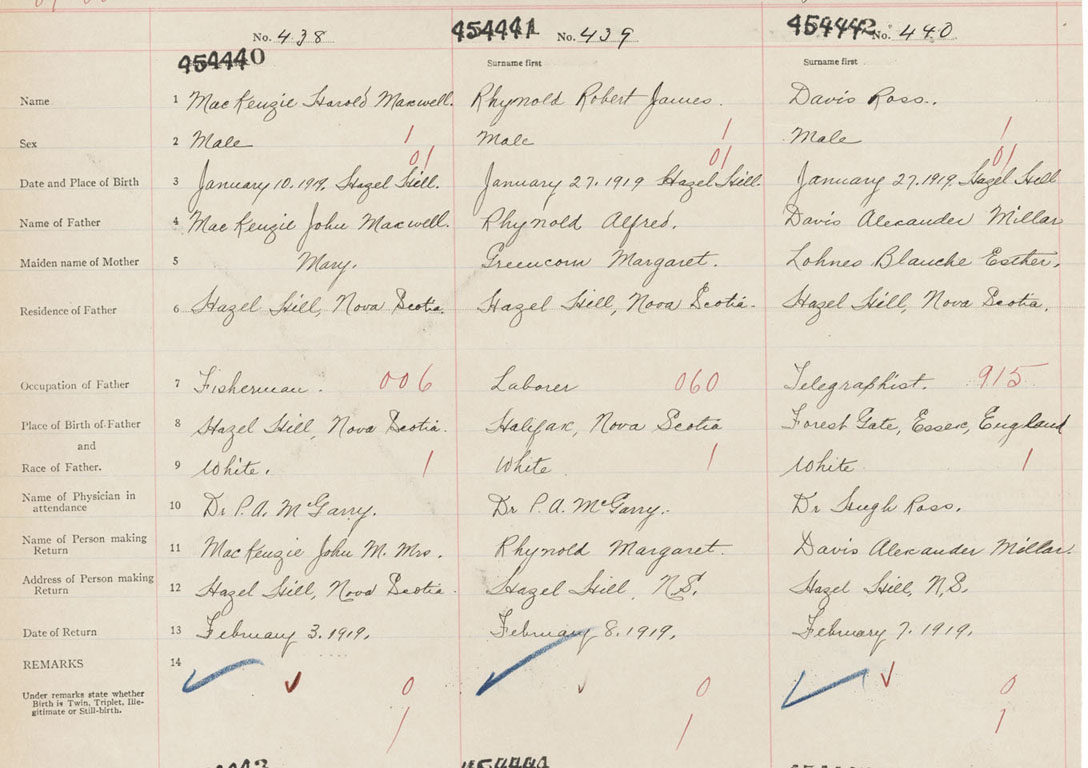 No. 438 454441 No. 439 454442 No. 440
454440 Surname first Surname first
Name 1 MacKenzie Harold Maxwell. Rhynold Robert James. Davis Ross.
Sex 2 Male 1 Male 1 Male 1
01 01 01
Date and Place of Birth 3 January 10. 1919. Hazel Hill. January 27. 1919 Hazel Hill. January 27. 1919. Hazel Hill
Name of Father 4 MacKenzie John Maxwell. Rhynold Alfred. Davis Alexander Millar
Maiden name of Mother 5 Mary. Greencorn Margaret. Lohnes Blanche Esther.
Residence of Father 6 Hazel Hill, Nova Scotia. Hazel Hill, Nova Scotia. Hazel Hill, Nova Scotia.
Occupation of Father 7 Fisherman. 006 Laborer 060 Telegraphist. 915
Place of Birth of Father 8 Hazel Hill, Nova Scotia. Halifax, Nova Scotia Forest Gate, Essex, England
and
Race of Father. 9 White. 1 White 1 White 1
Name of Physician in
attendance 10 Dr P. A. McGarry. Dr P. A. McGarry. Dr Hugh Ross.
Name of Person making
Return 11 MacKenzie John M. Mrs. Rhynold Margaret. Davis Alexander Millar.
Address of Person making
Return 12 Hazel Hill, Nova Scotia. Hazel Hill, N.S. Hazel Hill, N.S.
Date of Return 13 February 3. 1919. February 8. 1919. February 7. 1919.
REMARKS 14
Under remarks state whether
Birth is Twin, Triplet, Ille-
gitimate or Still-birth. 0 0 0
1 1 1